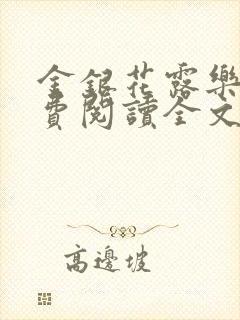 金銀花露樂
費閱讀全文
高邊坡